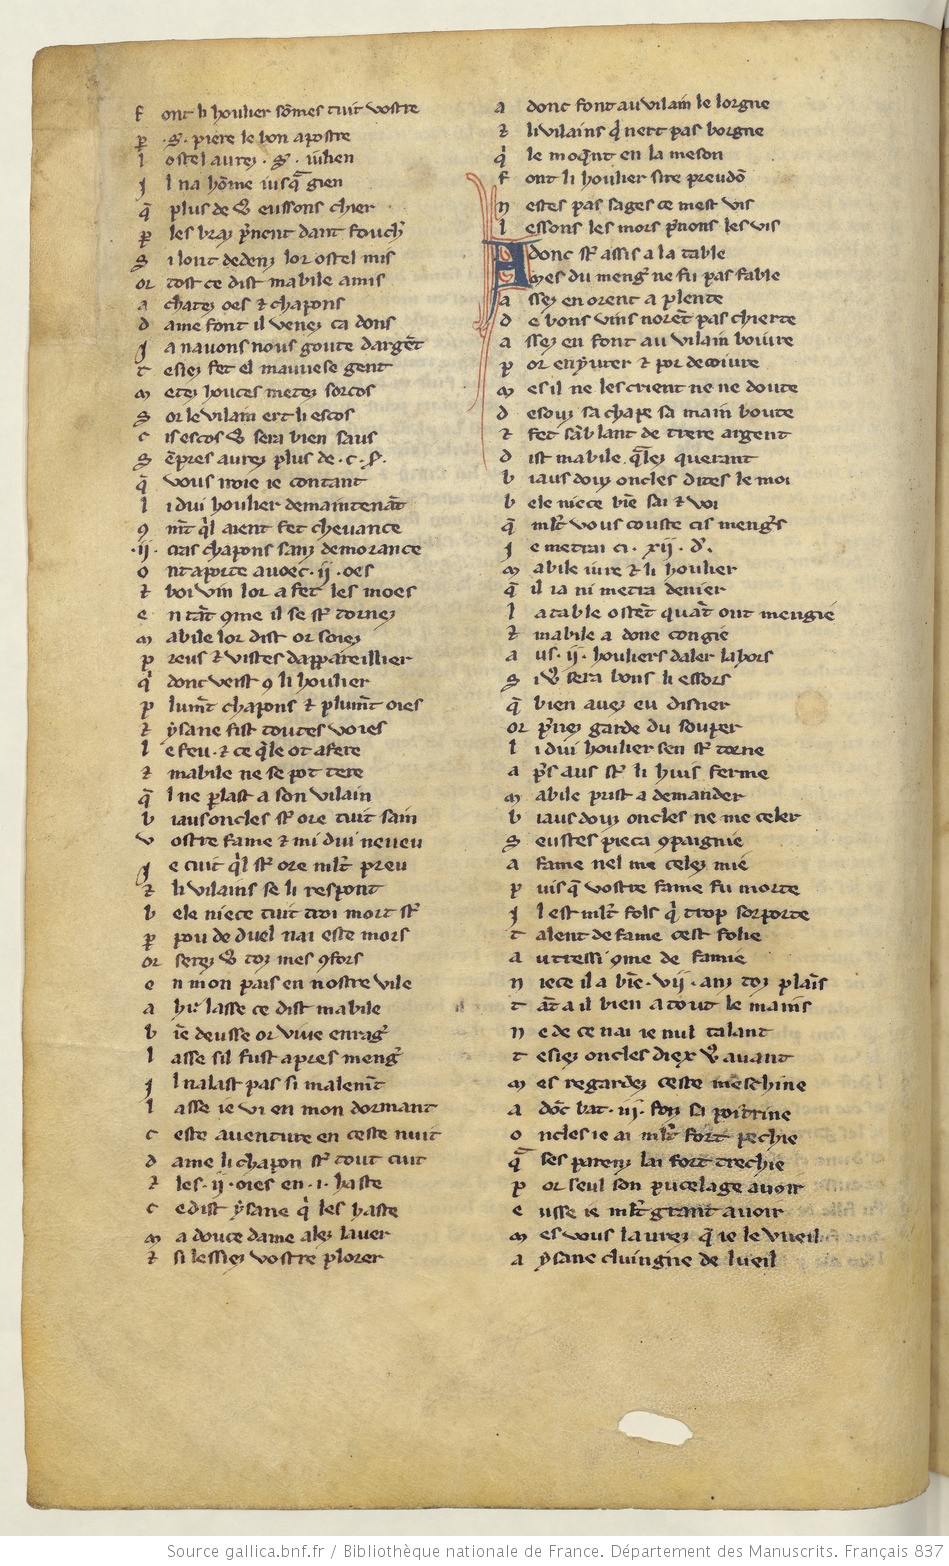 f ont li houlier sōmes tuit vostre
ꝑ .S. piere le bon apostre
l ostel aurez .S. iulien
J l na hōme iusq̄ gien
q̄ plus de v̾ eussons chier
ꝑ les braz p̄nent dant fouch̾
S i lont dedenz lor ostel mis
or tost ce dist mabile amis
a chatez oes ⁊ chapons
d ame font il venez ca dons
J a nauons nous goute dargēt
t esiez fet el mauuese gent
m etez houces metez sorcos
S or le vilain ert li escos
c is escos v̾ sera bien saus
S ēpres aurez plus de .c. s.
q̄ vous iroie ie contant
l i dui houlier demaintenāt
ꝯ mēt qͥl aient fet cheuance
.ii. cras chapons sanz demorance
o nt aporte auoec .ii. oes
⁊ boiuin lor a fet les moes
e n tāt ꝯme il se st̾ tornez
m abile lor dist or soiez
p reus ⁊ vistes dappareillier
qͥ donc veist ꝯ li houlier
p lumēt chapons ⁊ plumēt oies
⁊ ysane fist toutes voies
l e feu . ⁊ ce qͥle ot a fere
⁊ mabile ne se pot tere
q̄ l ne ꝑlast a son vilain
b iaus oncles st̾ ore tuit sain
v ostre fame ⁊ mi dui neueu
J e cuit qͥl st̾ ore ml̄t preu
⁊ li vilains se li respont
b ele niece tuit troi mort st̾
ꝑ pou de duel nai este mors
or serez v̾ toz mes ꝯfors
e n mon pais en nostre vile
a hi lasse ce dist mabile
b iē deusse or viure enrag̾
l asse sil fust apres meng̾
J l nalast pas si malemēt
l asse ie vi en mon dormant
c este auenture en ceste nuit
d ame li chapon st̾ tout cuit
⁊ les .ii. oies en .i. haste
c e dist ysane qͥ les haste
m a douce dame alez lauer
⁊ si lessiez vostre plorer
a donc font au vilain le lorgne
⁊ li vilains qͥ nert pas borgne
qͥ le moq̄nt en la meson
f ont li houlier sire preudō
n estes pas sages ce mest vis
l essons les mors p̄nons les vis
A donc st̾ assis a la table
m es du meng̾ ne fu pas fable
a ssez en orent a plente
d e bons vins norēt pas chierte
a ssez en font au vilain boiure
p or enyurer ⁊ por deciuire
m es il ne les crient ne ne doute
d esouz sa chape sa main boute
⁊ fet sāblant de trere argent
d ist mabile q̄lez querant
b iaus douz oncles dites le moi
b ele niece biē sai ⁊ voi
q̄ ml̄t vous couste cis meng̾s
J e metrai ci .xii. d̾.
m abile iure ⁊ li houlier
q̄ il ia ni metra denier
l a table ostēt quāt ont mengié
⁊ mabile a done congié
a us .ii. houliers daler la hors
S i v̾ sera bons li essors
q̄ bien auez eu disner
or p̄nez garde du souper
l i dui houlier sen st̾ torne
a p̄s aus st̾ li huis ferme
m abile prist a demander
b iaus douz oncles ne me celer
S eustes pieca ꝯpaignie
a fame nel me celez mie
p uisq̄ vostre fame fu morte
J l est ml̄t fols qͥ trop sorporte
t alent de fame cest folie
a utressi ꝯme de famie
n iece il a biē .vii. anz toz plaīs
t āt a il bien a tout le mains
n e de ce nai ie nul talant
t esiez oncles diex v̾ auant
m es regardez ceste meschine
a dōc bat .iii. foiz sa poitrine
o ncles ie ai ml̄t fort pechie
q̄ ses parenz lai fort trechie
p or seul son pucelage auoir
e usse ie ml̄t grant auoir
m es vous laurez q̄ ie le vueil
a ysane cluingne de lueil
Source gallica.bnf.fr / Bibliothèque nationale de France. Département des Manuscrits. Français 837